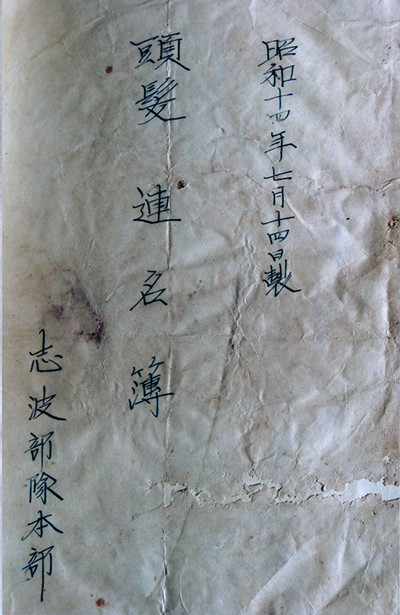 昭和十四年七月十四日製
頭髪連名簿
志波部隊本部